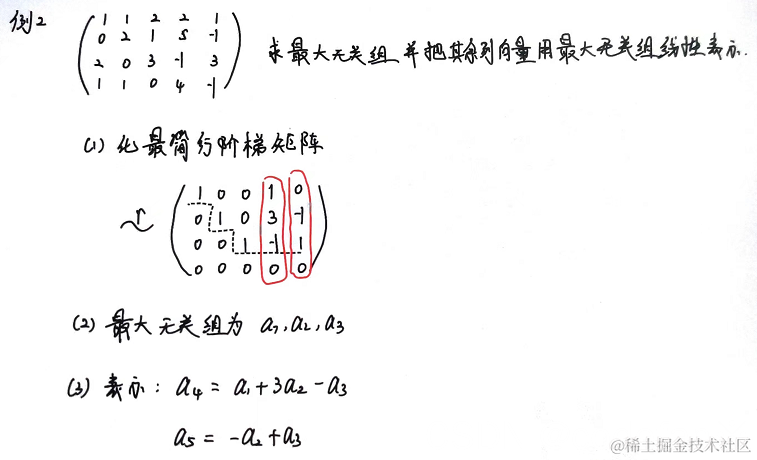 例2
1 1 2 2 1
0 2 1 5 -1
2 0 3 -1 3
1 1 0 4 -1
求最大无关组,并把其余列向量用最大无关组线性表示.
(1) 化最简行阶梯矩阵
r
~
1 0 0 1 0
0 1 0 3 -1
0 0 1 -1 1
0 0 0 0 0
(2) 最大无关组为 a1, a2, a3
(3) 表示: a4 = a1 + 3a2 - a3
a5 = -a2 + a3
@稀土掘金技术社区